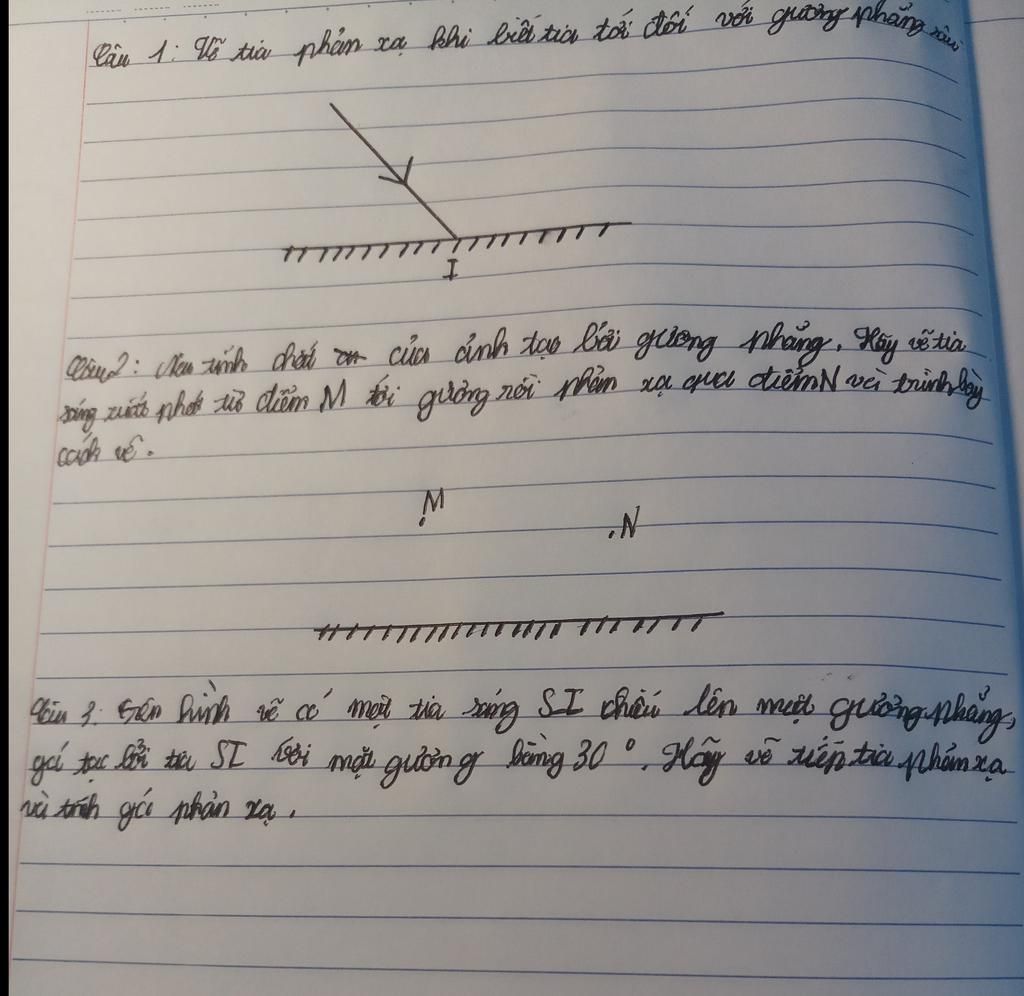 Câu 1: Vẽ tia phản xạ khi biết tia tới đối với gương phẳng sau
I
Câu 2: Nêu tính chất của ảnh tạo bởi gương phẳng. Hãy vẽ tia
sáng xuất phát từ điểm M tới gương rồi phản xạ qua điểm N và trình bày
cách vẽ.
M
N
Câu 3: trên hình vẽ có một tia sáng SI chiếu lên một gương phẳng,
góc tạo bởi tia SI với mặt gương bằng 30°. Hãy vẽ tiếp tia phản xạ
và tính góc phản xạ.